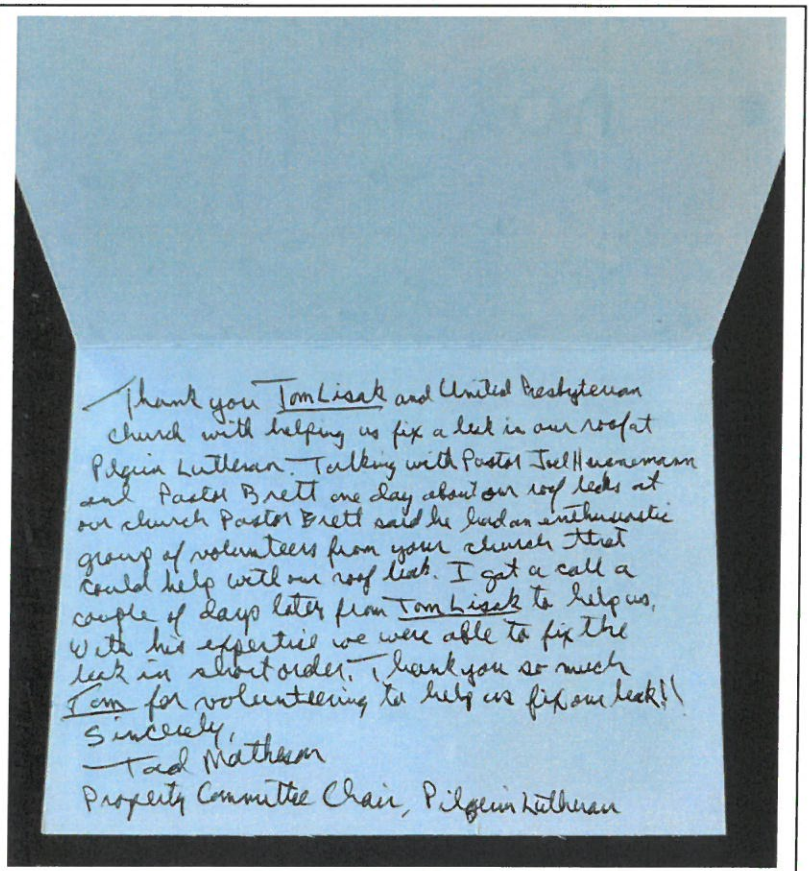 Thank you Tom Lisak and United Presbyterian
church with helping us fix a leak in our roof at
Pilgrim Lutheran. Talking with Pastor Joel Heunemann
and Pastor Brett one day about our roof leaks at
our church Pastor Brett said he had an enthusiastic
group of volunteers from your church that
could help with our roof leak. I got a call a
couple of days later from Tom Lisak to help us.
With his expertise we were able to fix the
leak in short order. Thank you so much
Tom for volunteering to help us fix our leak!!
Sincerely,
Tad Matheson
Property Committee Chair, Pilgrim Lutheran